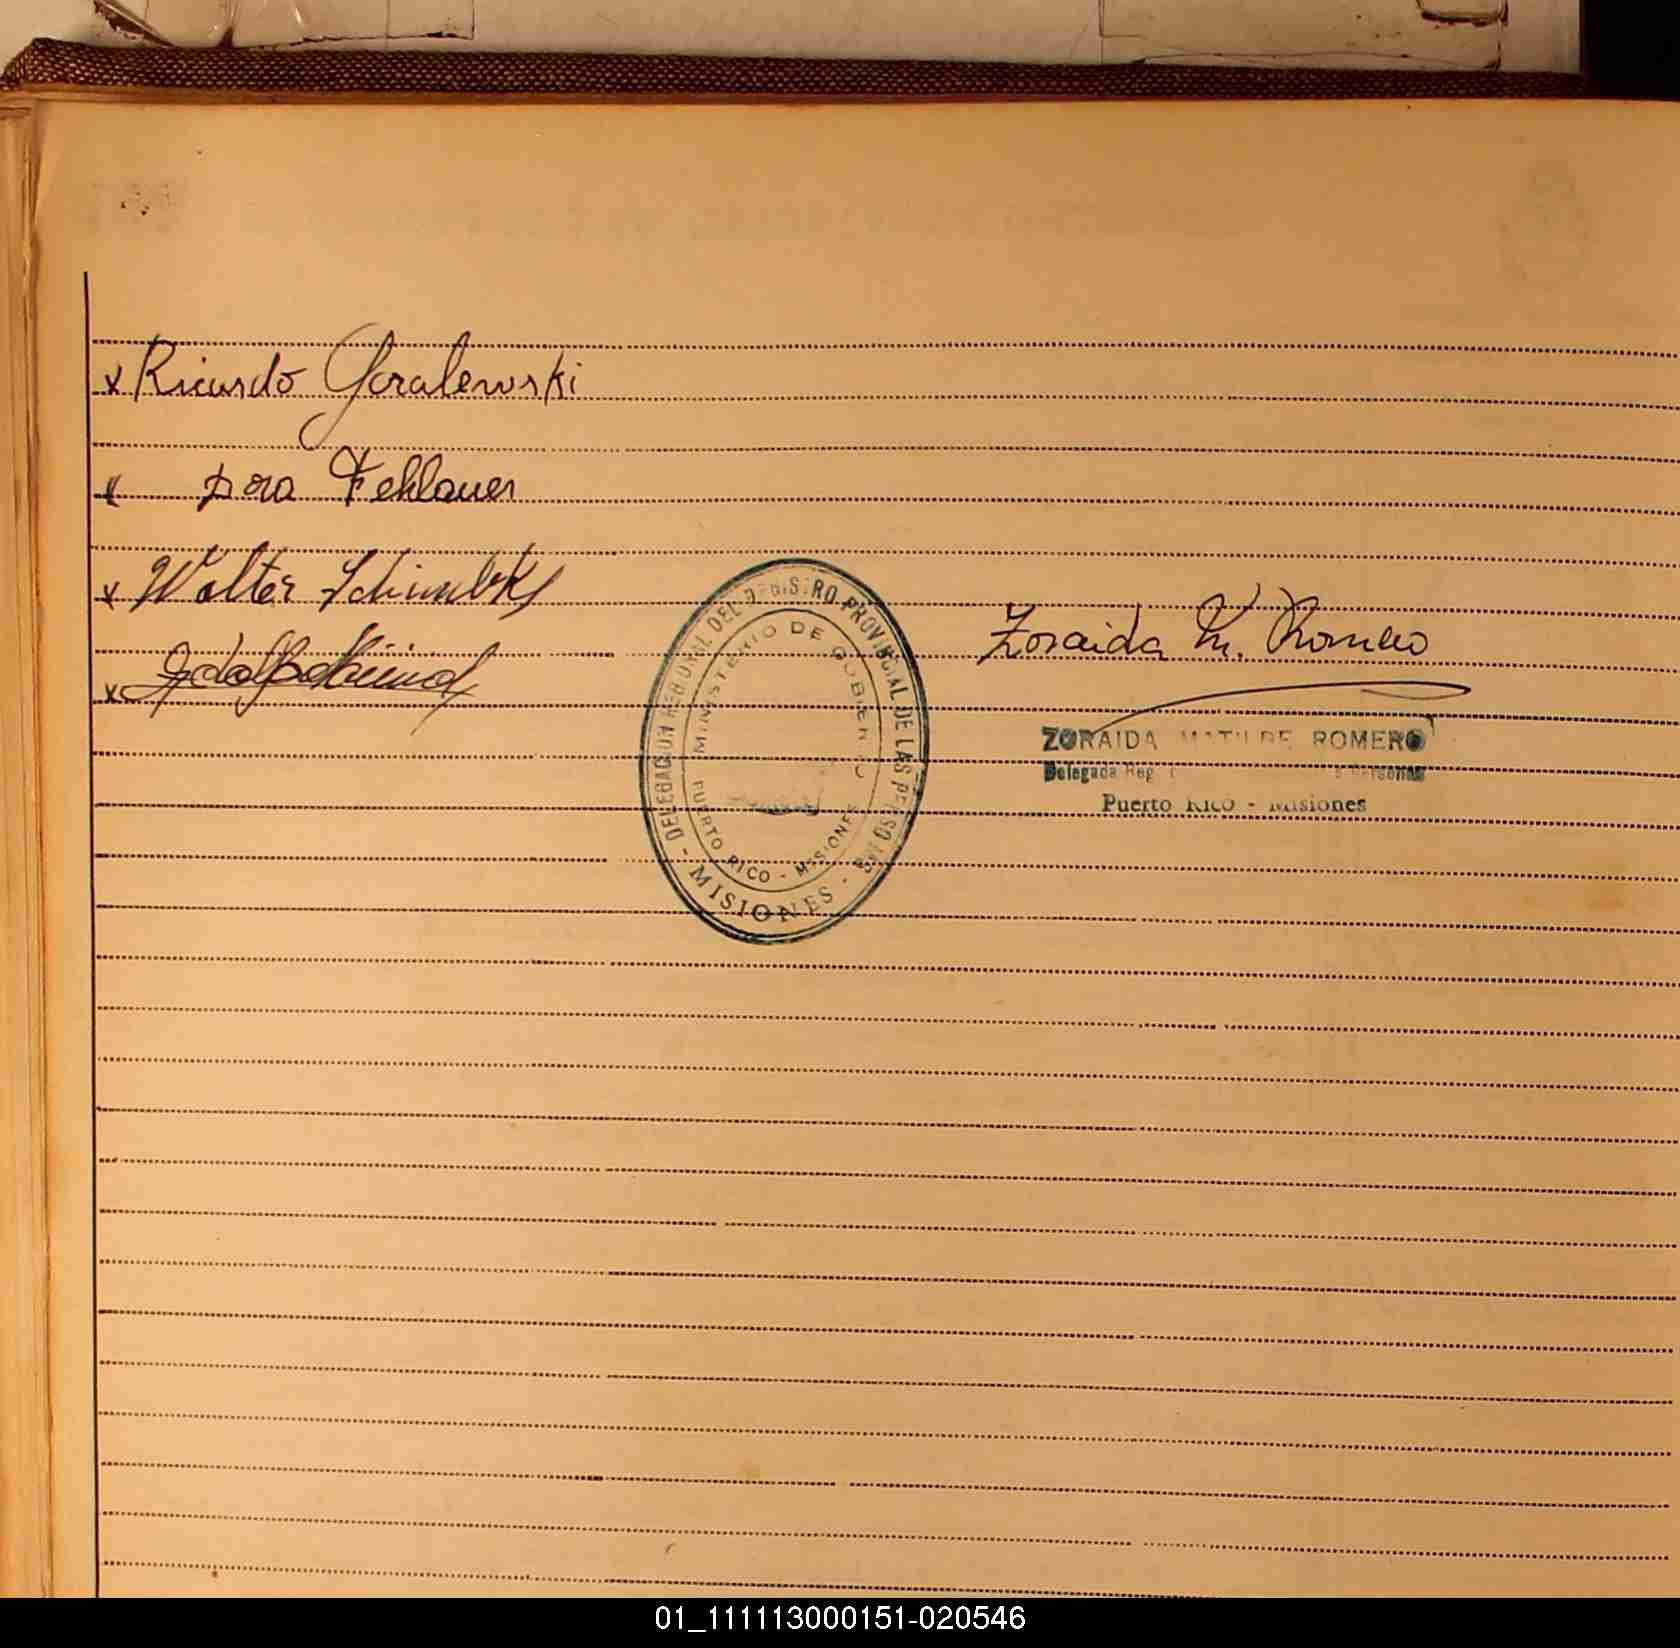 x Ricardo Goralewski
" Dora Fehlauer
x Walter
x Adolfo
Zoraida M. Romero
ZORAIDA MATILDE ROMERO
Delegada Reg. Personas
Puerto Rico - Misiones
DELEGACION REGIONAL DEL REGISTRO PROVINCIAL DE LAS PERSONAS
- MISIONES -
MINISTERIO DE GOBIERNO
PUERTO RICO - MISIONES
01_111113000151-020546